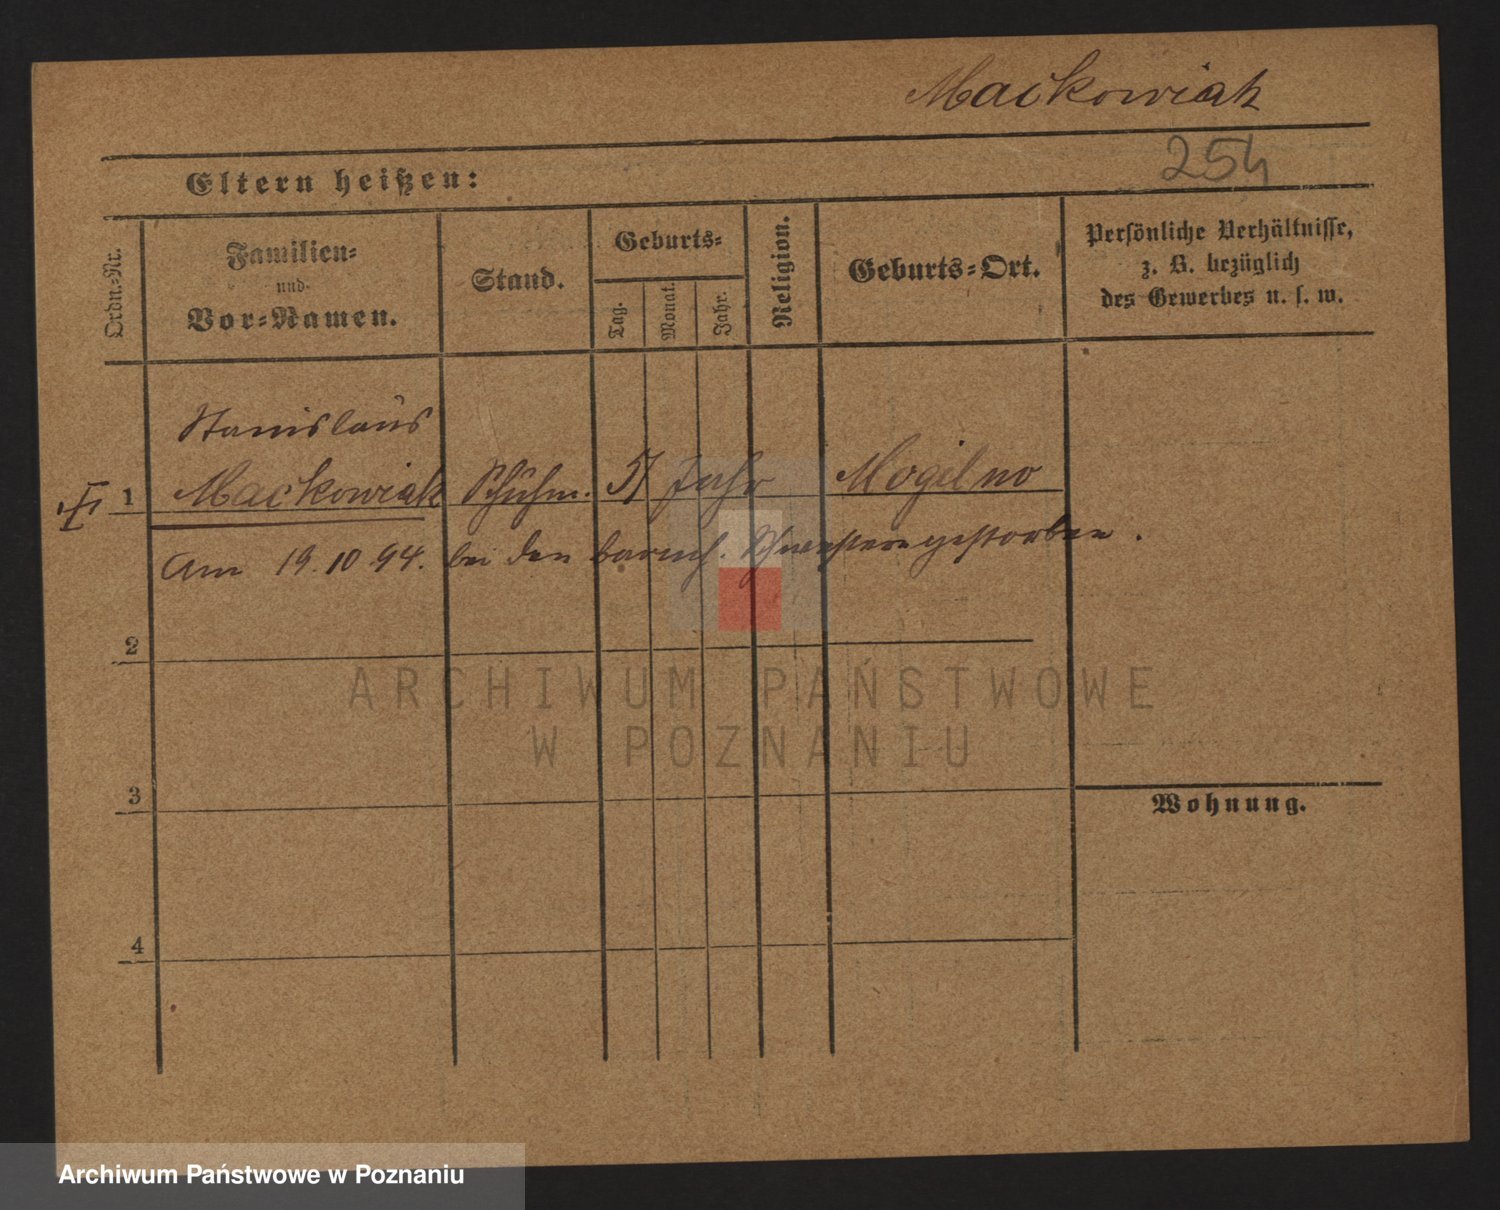 Mackowiak
254
Eltern heißen:
Ordn.-Nr.
Familien- und Vor-Namen.
Stand.
Geburts-
Tag.
Monat.
Jahr.
Religion.
Geburts-Ort.
Persönliche Verhältnisse,
z. B. bezüglich
des Gewerbes u. s. w.
Stanislaus
1 Mackowiak Schuhm. 51 Jahr Mogilno
Am 19.10.94. bei den barmh. Schwestern gestorben.
2
3
Wohnung.
4
ARCHIWUM PAŃSTWOWE
W POZNANIU
Archiwum Państwowe w Poznaniu